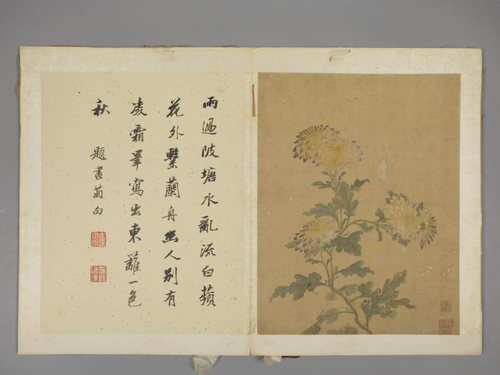 雨過陂塘水亂流白蘋
花外繫蘭舟幽人別有
凌霜筆寫出東籬一色
秋
題畫菊